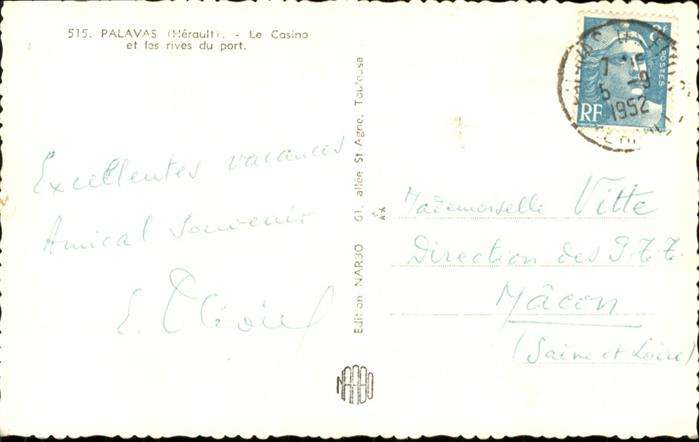 515. PALAVAS (Hérault). - Le Casino
et les rives du port.
Excellentes vacances
Amical Souvenir
E.
Edition NARBO 61, allée St Agne, Toulouse
NARBO
POSTES
RF
7
5 -9
1952
Mademoiselle Vitte
Direction des P.T.T.
Mâcon
(Saône et Loire)